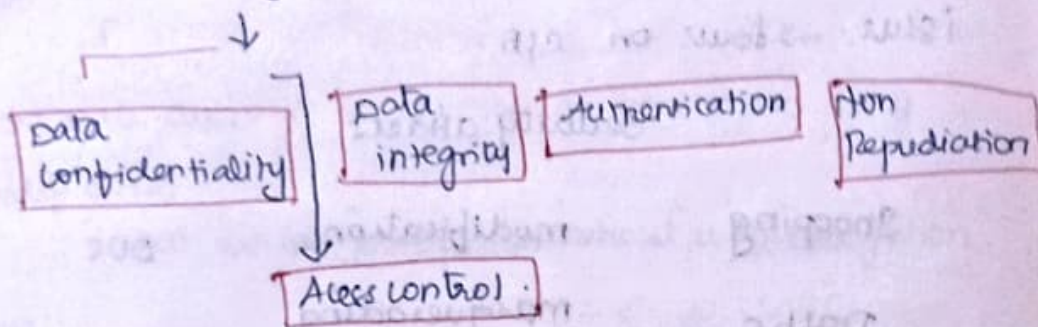 Data
confidentiality
Data
integrity
Authentication
Non
Repudiation
Acess control.